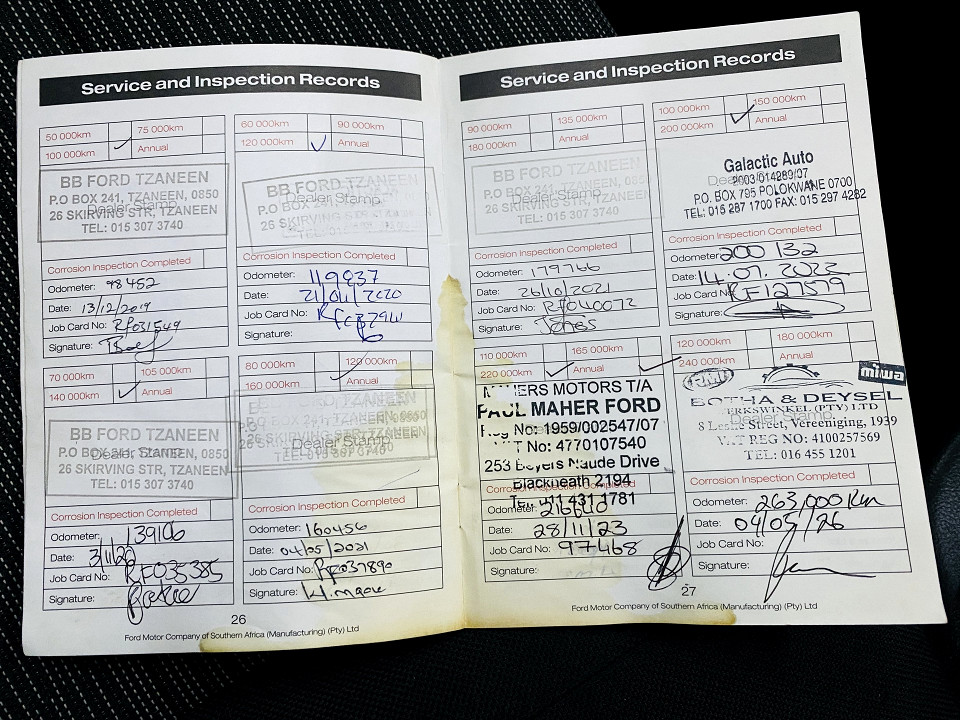 Service and Inspection Records
50 000km 75 000km
100 000km ✓ Annual
BB FORD TZANEEN
P.O BOX 241, TZANEEN, 0850
Dealer Stamp
26 SKIRVING STR, TZANEEN
TEL: 015 307 3740
Corrosion Inspection Completed
Odometer: 98452
Date: 13/12/2019
Job Card No: RF031549
Signature:
60 000km 90 000km
120 000km ✓ Annual
BB FORD TZANEEN
P.O BOX 241, TZANEEN
Dealer Stamp
26 SKIRVING STR, TZANEEN
TEL: 015 307 3740
Corrosion Inspection Completed
Odometer: 119837
Date: 21/04/2020
Job Card No:
Signature:
70 000km 105 000km
140 000km ✓ Annual
BB FORD TZANEEN
P.O BOX 241, TZANEEN
Dealer Stamp
26 SKIRVING STR, TZANEEN
TEL: 015 307 3740
Corrosion Inspection Completed
Odometer: 139106
Date: 3/11/20
Job Card No: RF035385
Signature:
80 000km 120 000km
160 000km ✓ Annual
BB FORD TZANEEN
P.O BOX 241, TZANEEN, 0850
Dealer Stamp
26 SKIRVING STR, TZANEEN
TEL: 015 307 3740
Corrosion Inspection Completed
Odometer: 160456
Date: 04/05/2021
Job Card No: RF037890
Signature:
26
Ford Motor Company of Southern Africa (Manufacturing) (Pty) Ltd
Service and Inspection Records
90 000km 135 000km
180 000km Annual
BB FORD TZANEEN
P.O BOX 241, TZANEEN, 0850
Dealer Stamp
26 SKIRVING STR, TZANEEN
TEL: 015 307 3740
Corrosion Inspection Completed
Odometer: 179766
Date: 26/10/2021
Job Card No: RF040072
Signature: Jones
100 000km 150 000km
200 000km ✓ Annual
Galactic Auto
Dealer Stamp
P.O. BOX 795 POLOKWANE 0700
TEL: 015 287 1700 FAX: 015 297 4282
Corrosion Inspection Completed
Odometer: 200 132
Date: 14.07.2022
Job Card No: RF127579
Signature:
110 000km 165 000km
220 000km ✓ Annual ✓
MOTORS T/A
PAUL MAHER FORD
Reg No: 1959/002547/07
No: 4770107540
253 Beyers Naude Drive
Blackheath 2194
Tel: 011 431 1781
Corrosion Inspection Completed
Odometer:
Date: 28/11/23
Job Card No: 97468
Signature:
120 000km 180 000km
240 000km Annual
RMI
miwa
BOTHA & DEYSEL
WERKSWINKEL (PTY) LTD
Dealer Stamp
8 Leslie Street, Vereeniging, 1939
VAT REG NO: 4100257569
TEL: 016 455 1201
Corrosion Inspection Completed
Odometer: 263,000 km
Date: 04/05/26
Job Card No:
Signature:
27
Ford Motor Company of Southern Africa (Manufacturing) (Pty) Ltd